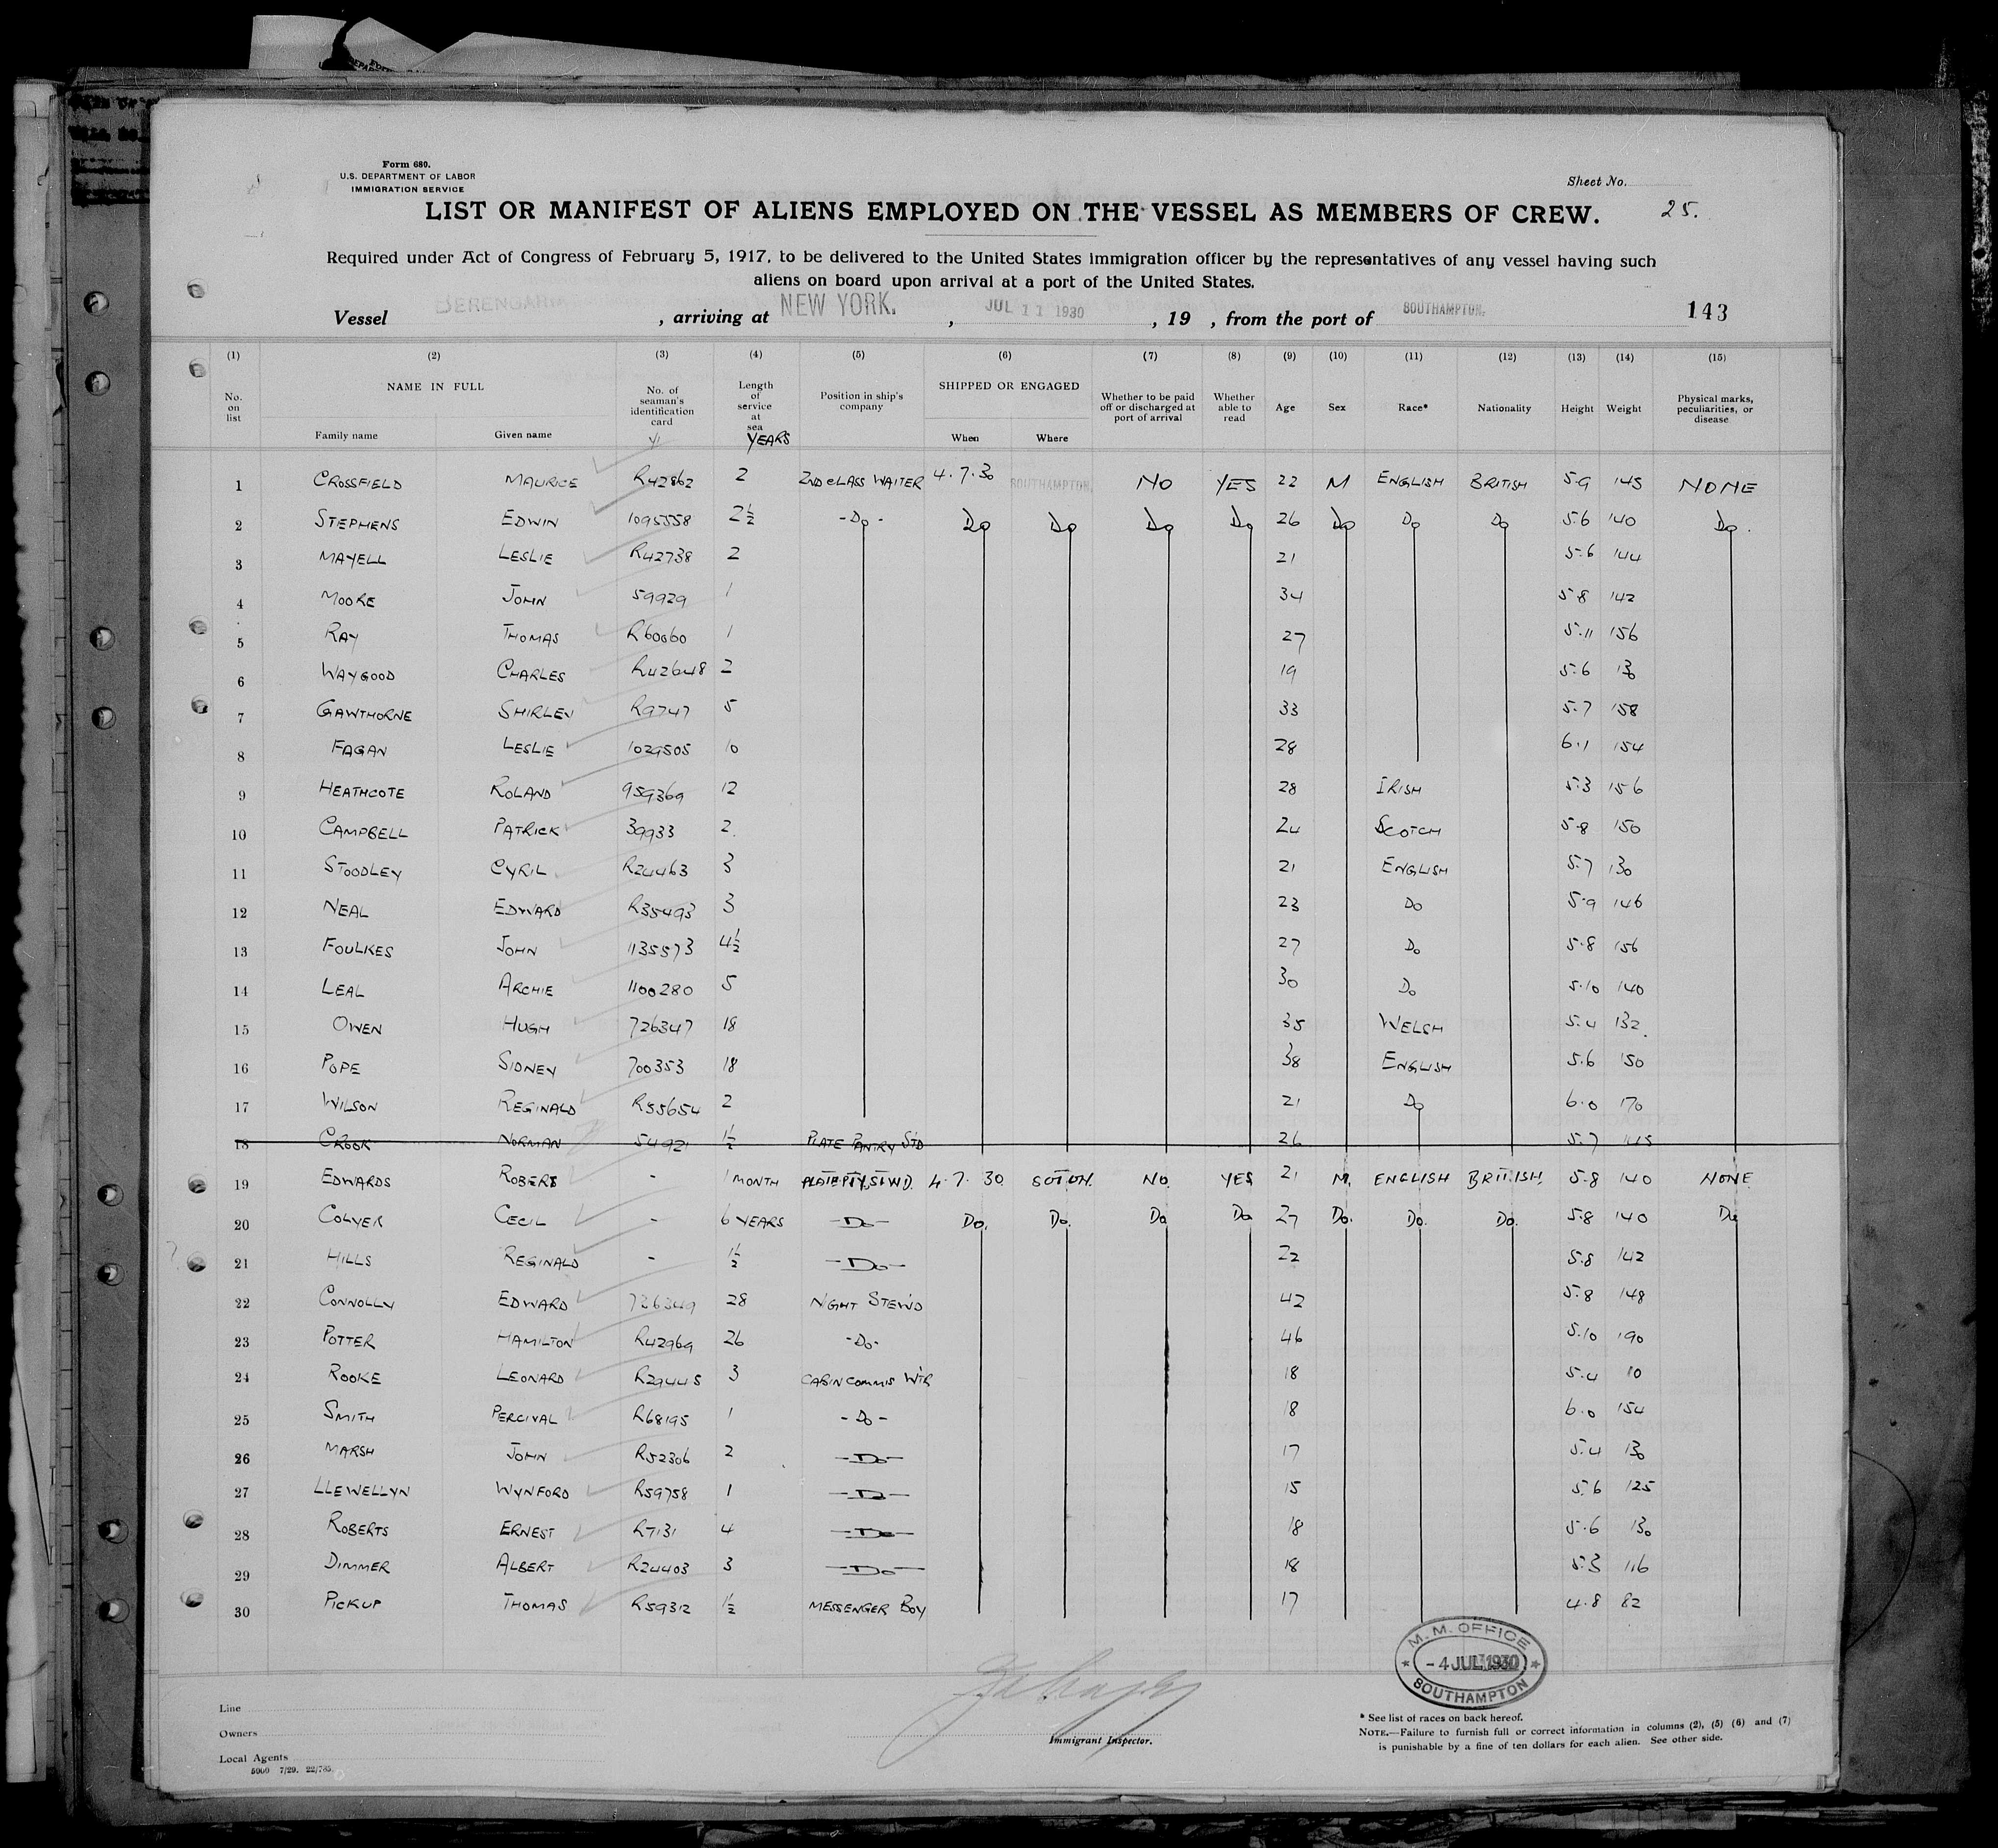 Form 680.
U.S. DEPARTMENT OF LABOR
IMMIGRATION SERVICE
Sheet No.
LIST OR MANIFEST OF ALIENS EMPLOYED ON THE VESSEL AS MEMBERS OF CREW. 25.
Required under Act of Congress of February 5, 1917, to be delivered to the United States immigration officer by the representatives of any vessel having such
aliens on board upon arrival at a port of the United States.
Vessel BERENGARIA , arriving at NEW YORK. , JUL 11 1930 , 19 , from the port of SOUTHAMPTON. 143
(1) (2) (3) (4) (5) (6) (7) (8) (9) (10) (11) (12) (13) (14) (15)
No. on list NAME IN FULL Family name Given name No. of seaman's identification card Length of service at sea YEARS Position in ship's company SHIPPED OR ENGAGED When Where Whether to be paid off or discharged at port of arrival Whether able to read Age Sex Race* Nationality Height Weight Physical marks, peculiarities, or disease
1 CROSSFIELD MAURICE R42862 2 2ND CLASS WAITER 4.7.30 SOUTHAMPTON. NO YES 22 M ENGLISH BRITISH 5.9 145 NONE
2 STEPHENS EDWIN 1095558 2½ -Do- Do Do Do Do 26 Do Do Do 5.6 140 Do.
3 MAYELL LESLIE R42738 2 21 5.6 144
4 MOORE JOHN 59929 1 34 5.8 142
5 RAY THOMAS R60060 1 27 5.11 156
6 WAYGOOD CHARLES R42648 2 19 5.6 130
7 GAWTHORNE SHIRLEY R9747 5 33 5.7 158
8 FAGAN LESLIE 1029505 10 28 6.1 154
9 HEATHCOTE ROLAND 959369 12 28 IRISH 5.3 156
10 CAMPBELL PATRICK 39933 2. 24 SCOTCH 5.8 150
11 STOODLEY CYRIL R24463 3 21 ENGLISH 5.7 130
12 NEAL EDWARD R35493 3 23 Do 5.9 146
13 FOULKES JOHN 1135573 4½ 27 Do 5.8 156
14 LEAL ARCHIE 1100280 5 30 Do 5.10 140
15 OWEN HUGH 726347 18 35 WELSH 5.4 132.
16 POPE SIDNEY 700353 18 38 ENGLISH 5.6 150
17 WILSON REGINALD R55654 2 21 Do 6.0 170
18 CROOK NORMAN 54921 1½ PLATE PANTRY STD 26 5.7 145
19 EDWARDS ROBERT - 1 MONTH PLATE PTY. STWD. 4.7.30. SOTON. NO. YES 21 M. ENGLISH BRITISH. 5.8 140 NONE
20 COLYER CECIL - 6 YEARS -Do- Do. Do. Do Do 27 Do. Do. Do. 5.8 140 Do
21 HILLS REGINALD - 1½ -Do- 22 5.8 142
22 CONNOLLY EDWARD 736349 28 NIGHT STEWD 42 5.8 148
23 POTTER HAMILTON R42969 26 -Do- 46 5.10 190
24 ROOKE LEONARD R29445 3 CABIN COMMIS WTR 18 5.4
25 SMITH PERCIVAL R68195 1 -Do- 18 6.0 154
26 MARSH JOHN R52306 2 -Do- 17 5.4 130
27 LLEWELLYN WYNFORD R59758 1 -Do- 15 5.6 125
28 ROBERTS ERNEST R7131 4 -Do- 18 5.6 130
29 DIMMER ALBERT R24403 3 -Do- 18 5.3 116
30 PICKUP THOMAS R59312 1½ MESSENGER BOY 17 4.8 82
M. M. OFFICE
-4 JUL 1930
SOUTHAMPTON
Line
Owners
Local Agents
5000 7/29. 22/785
Immigrant Inspector.
* See list of races on back hereof.
NOTE.—Failure to furnish full or correct information in columns (2), (5) (6) and (7)
is punishable by a fine of ten dollars for each alien. See other side.